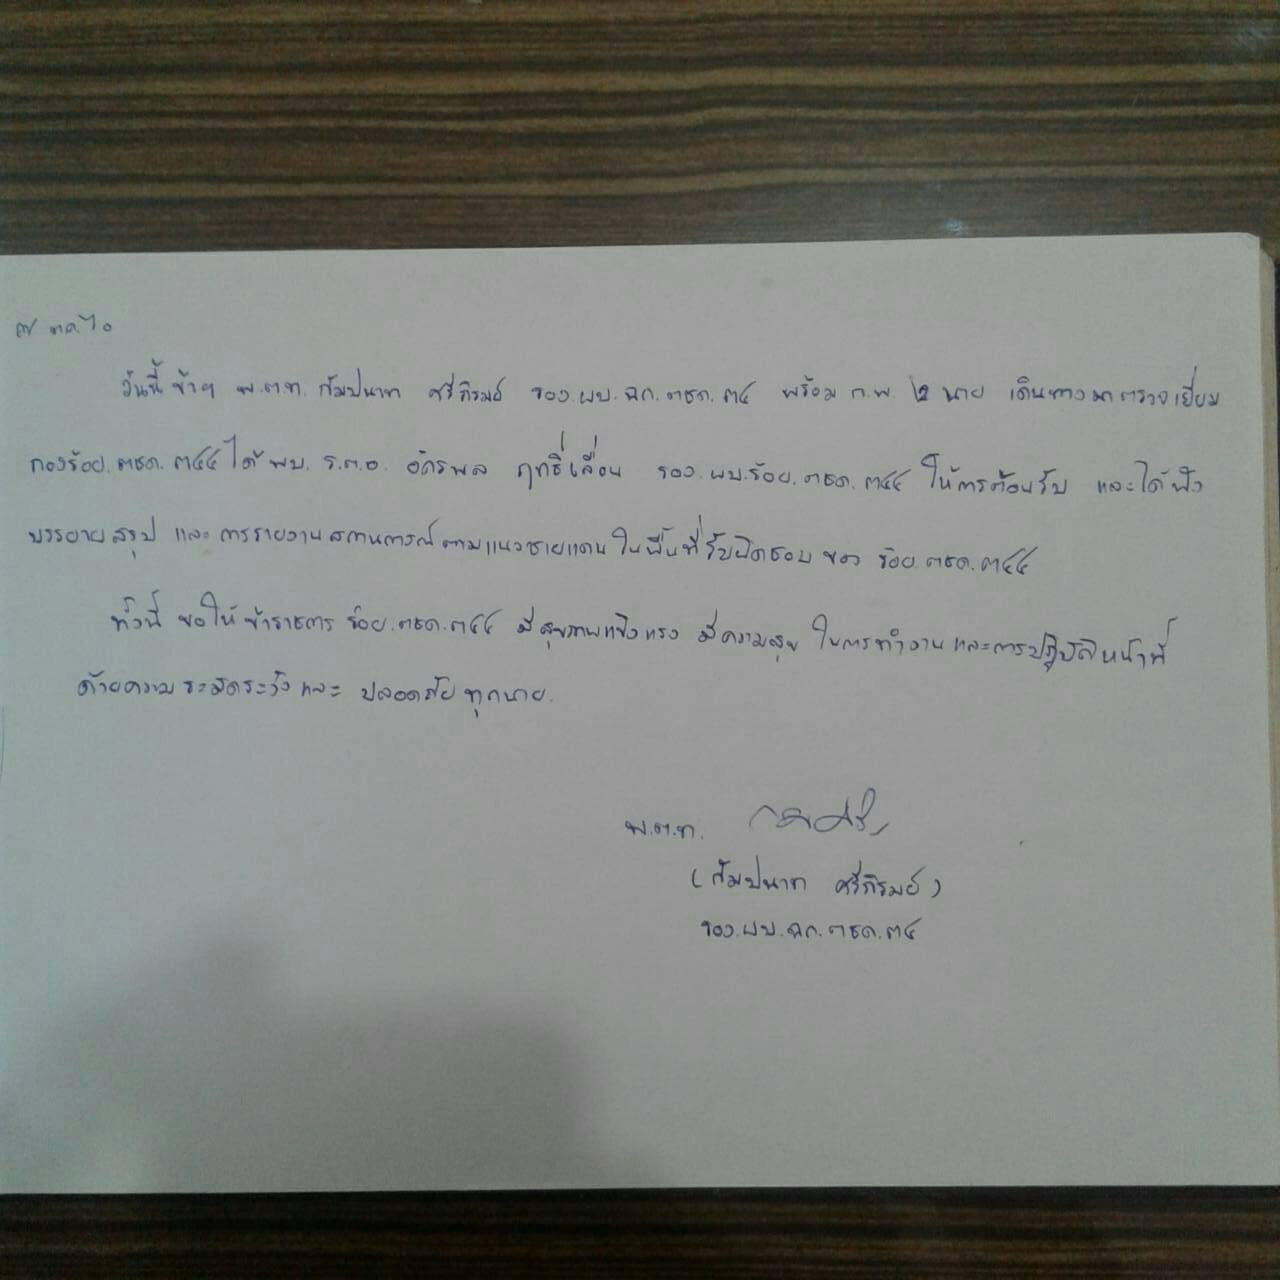 ๗ ต.ค.๖๐
วันนี้ ข้าฯ พ.ต.ท. กัมปนาท ศรีภิรมย์ รอง.ผบ.ฉก.ตชด.๓๔ พร้อม ก.พ. ๒ นาย เดินทางมาตรวจเยี่ยม
กองร้อย.ตชด.๓๔๔ ได้ พบ. ร.ต.อ. อัครพล ฤทธิ์เลื่อน รอง.ผบ.ร้อย.ตชด.๓๔๔ ให้การต้อนรับ และได้ฟัง
บรรยายสรุป และ การรายงานสถานการณ์ตามแนวชายแดน ในพื้นที่รับผิดชอบ ของ ร้อย.ตชด.๓๔๔
ทั้งนี้ ขอให้ ข้าราชการ ร้อย.ตชด.๓๔๔ มีสุขภาพแข็งแรง มีความสุข ในการทำงาน และการปฏิบัติหน้าที่
ด้วยความ ระมัดระวัง และ ปลอดภัย ทุกนาย.
พ.ต.ท.
(กัมปนาท ศรีภิรมย์)
รอง.ผบ.ฉก.ตชด.๓๔